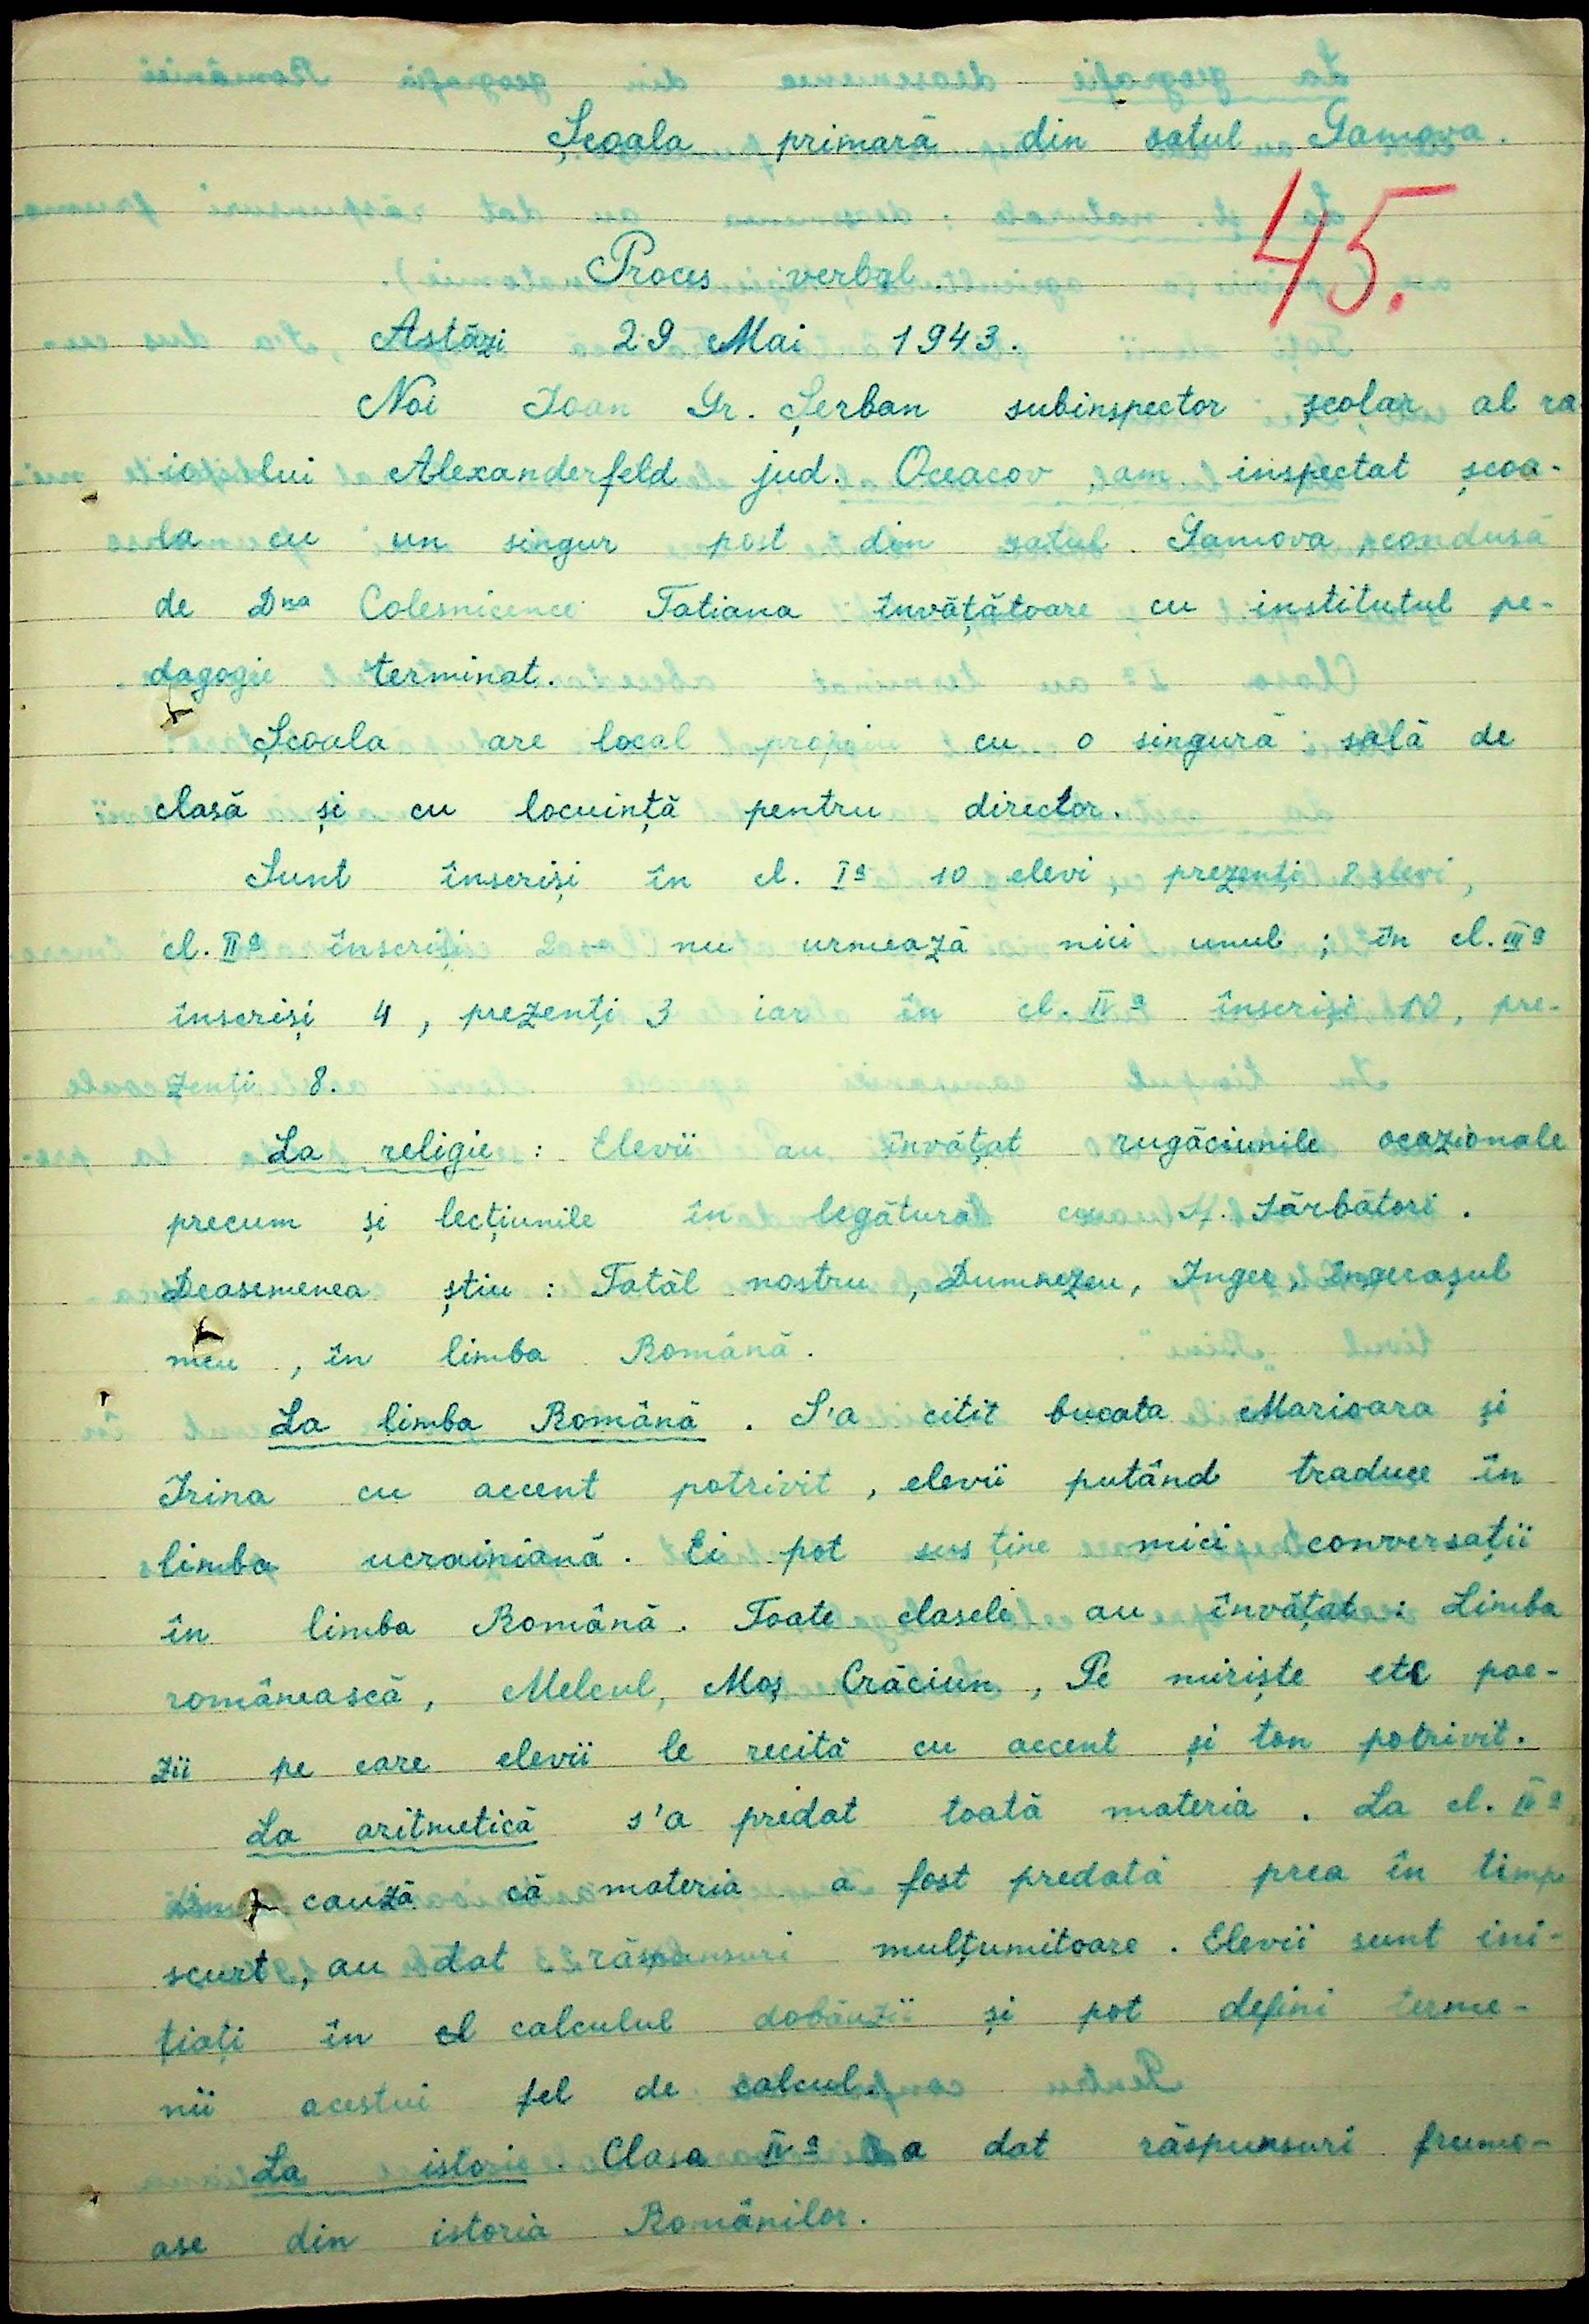 Școala primară din satul Gamova.
45.
Proces verbal.
Astăzi 29 Mai 1943.
Noi Ioan Gr. Șerban subinspector școlar al ra-
ionului Alexanderfeld jud. Oceacov, am inspectat școa-
la cu un singur post din satul Gamova, condusă
de Dna Colesnicenco Tatiana învățătoare cu institutul pe-
dagogic terminat.
Școala are local propriu cu o singură sală de
clasă și cu locuință pentru director.
Sunt înscriși în cl. Ia 10 elevi, prezenți 2 elevi,
cl. IIa înscriși 2 nu urmează nici unul; în cl. IIIa
înscriși 4, prezenți 3 iar în cl. IVa înscriși 10, pre-
zenți 8.
La religie: Elevii au învățat rugăciunile ocazionale
precum și lecțiunile în legătură cu Sf. Sărbători.
Deasemenea știu: Tatăl nostru, Dumnezeu, Inger, îngerașul
meu, în limba Română.
La limba Română. S'a citit bucata Marioara și
Irina cu accent potrivit, elevii putând traduce în
limba ucrainiană. Ei pot sus ține mici conversații
în limba Română. Toate clasele au învățat: Limba
românească, Melcul, Moș Crăciun, Pe miriște etc poe-
zii pe care elevii le recită cu accent și ton potrivit.
La aritmetică s'a predat toată materia. La cl. IVa
cauză că materia a fost predată prea în timp
scurt, au dat răspunsuri mulțumitoare. Elevii sunt ini-
țiați în calculul dobânzii și pot defini terme-
nii acestui fel de calcul.
La istorie. Clasa IVa a dat răspunsuri frumo-
ase din istoria Românilor.